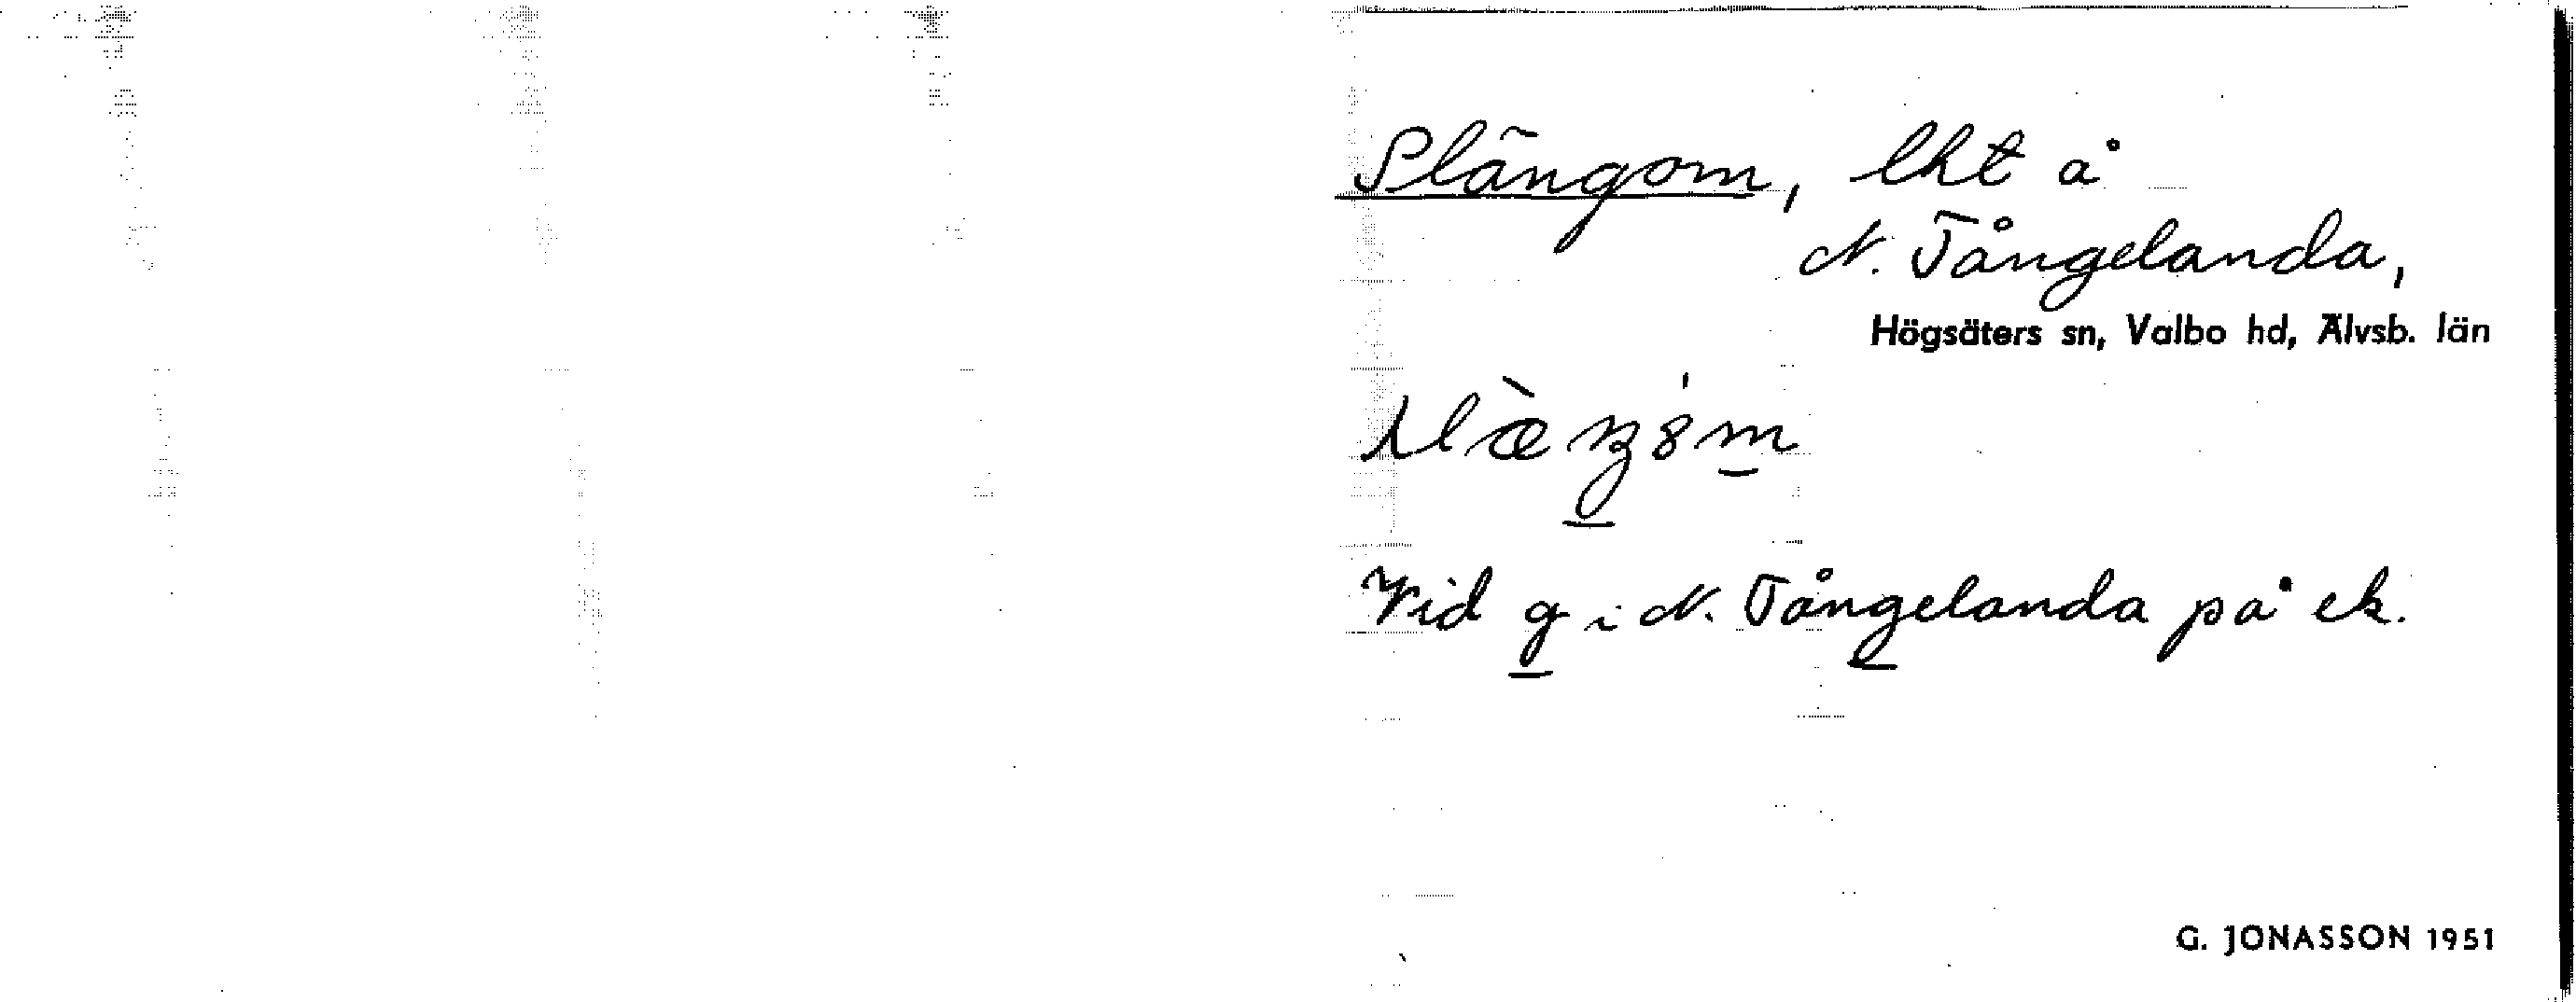 Slängom, lht å
N. Tångelanda,
Högsäters sn, Valbo hd, Älvsb. län
Vid g i N. Tångelanda på ek.
G. JONASSON 1951